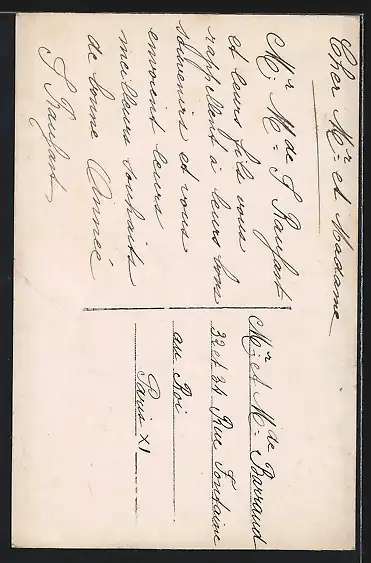 Cher Mr. et Madame
Mr. Mde. S Raufast
et leurs fils vous
rappellent à leurs bons
souvenirs et vous
envoient leurs
meilleurs souhaits
de bonne Année
S Raufast
Mr. et Mde. Barraud
32 et 34 Rue Fontaine
au Roi
Paris XI